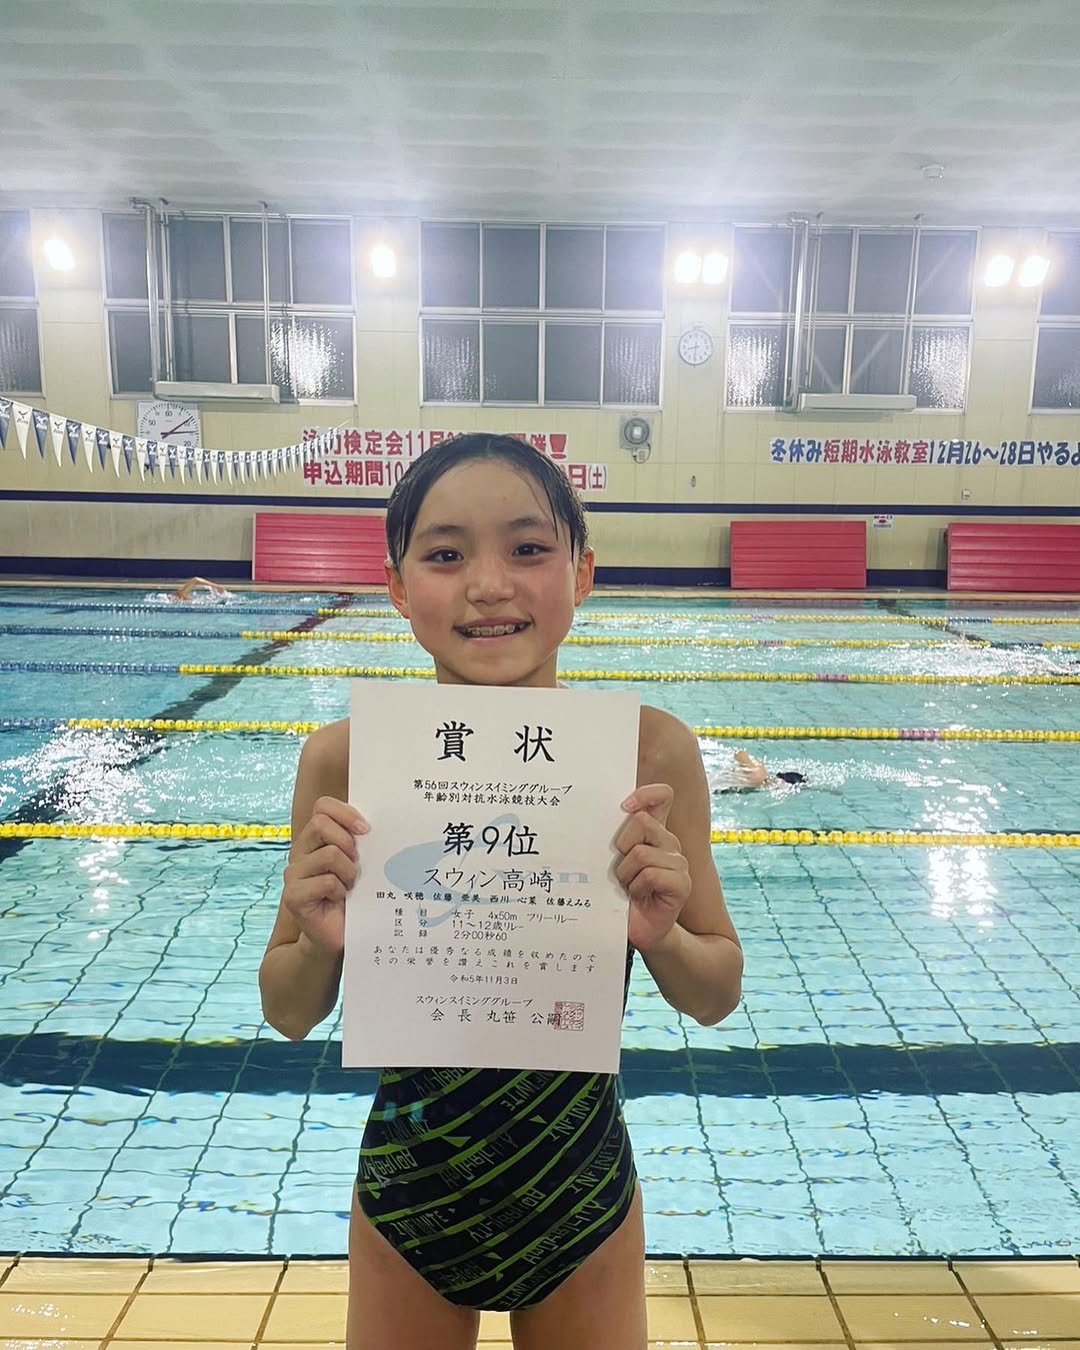 泳力検定会11月
申込期間10
日(土)
冬休み短期水泳教室12月26～28日やるよ
賞 状
第56回スウィンスイミンググループ
年齢別対抗水泳競技大会
第9位
スウィン高崎
田丸 咲穂 佐藤 亜美 西川 心菜 佐藤えみる
種 目 女子 4x50m フリーリレー
区 分 11～12歳リレー
記 録 2分00秒60
あなたは優秀なる成績を収めたので
その栄誉を讃えこれを賞します
令和5年11月3日
スウィンスイミンググループ
会 長 丸笹 公嗣